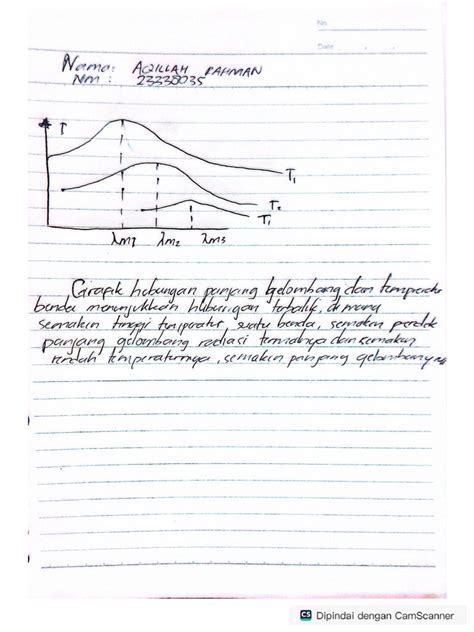 No.
Date
Nama: AQILLAH RAHMAN
NIM : 23338035
I
T₁
T₂
T₁
λm1 λm2 λm3
Grafik hubungan panjang gelombang dan temperatur
benda menunjukkan hubungan terbalik, di mana
semakin tinggi temperatur, suatu benda, semakin pendek
panjang gelombang radiasi termalnya dan semakin
rendah temperaturnya, semakin panjang gelombangnya
CS Dipindai dengan CamScanner